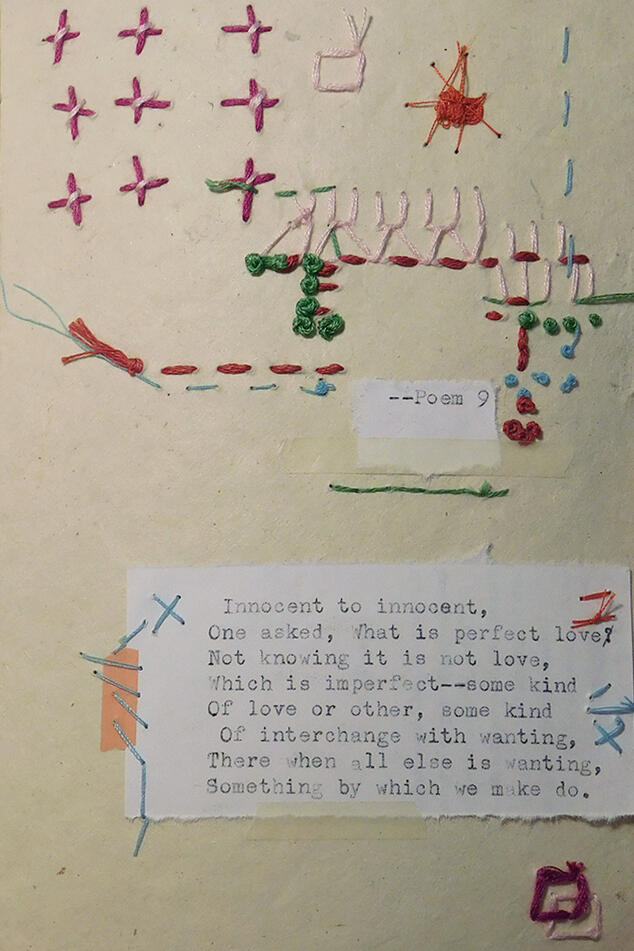 --Poem 9
Innocent to innocent,
One asked, What is perfect love?
Not knowing it is not love,
Which is imperfect--some kind
Of love or other, some kind
Of interchange with wanting,
There when all else is wanting,
Something by which we make do.